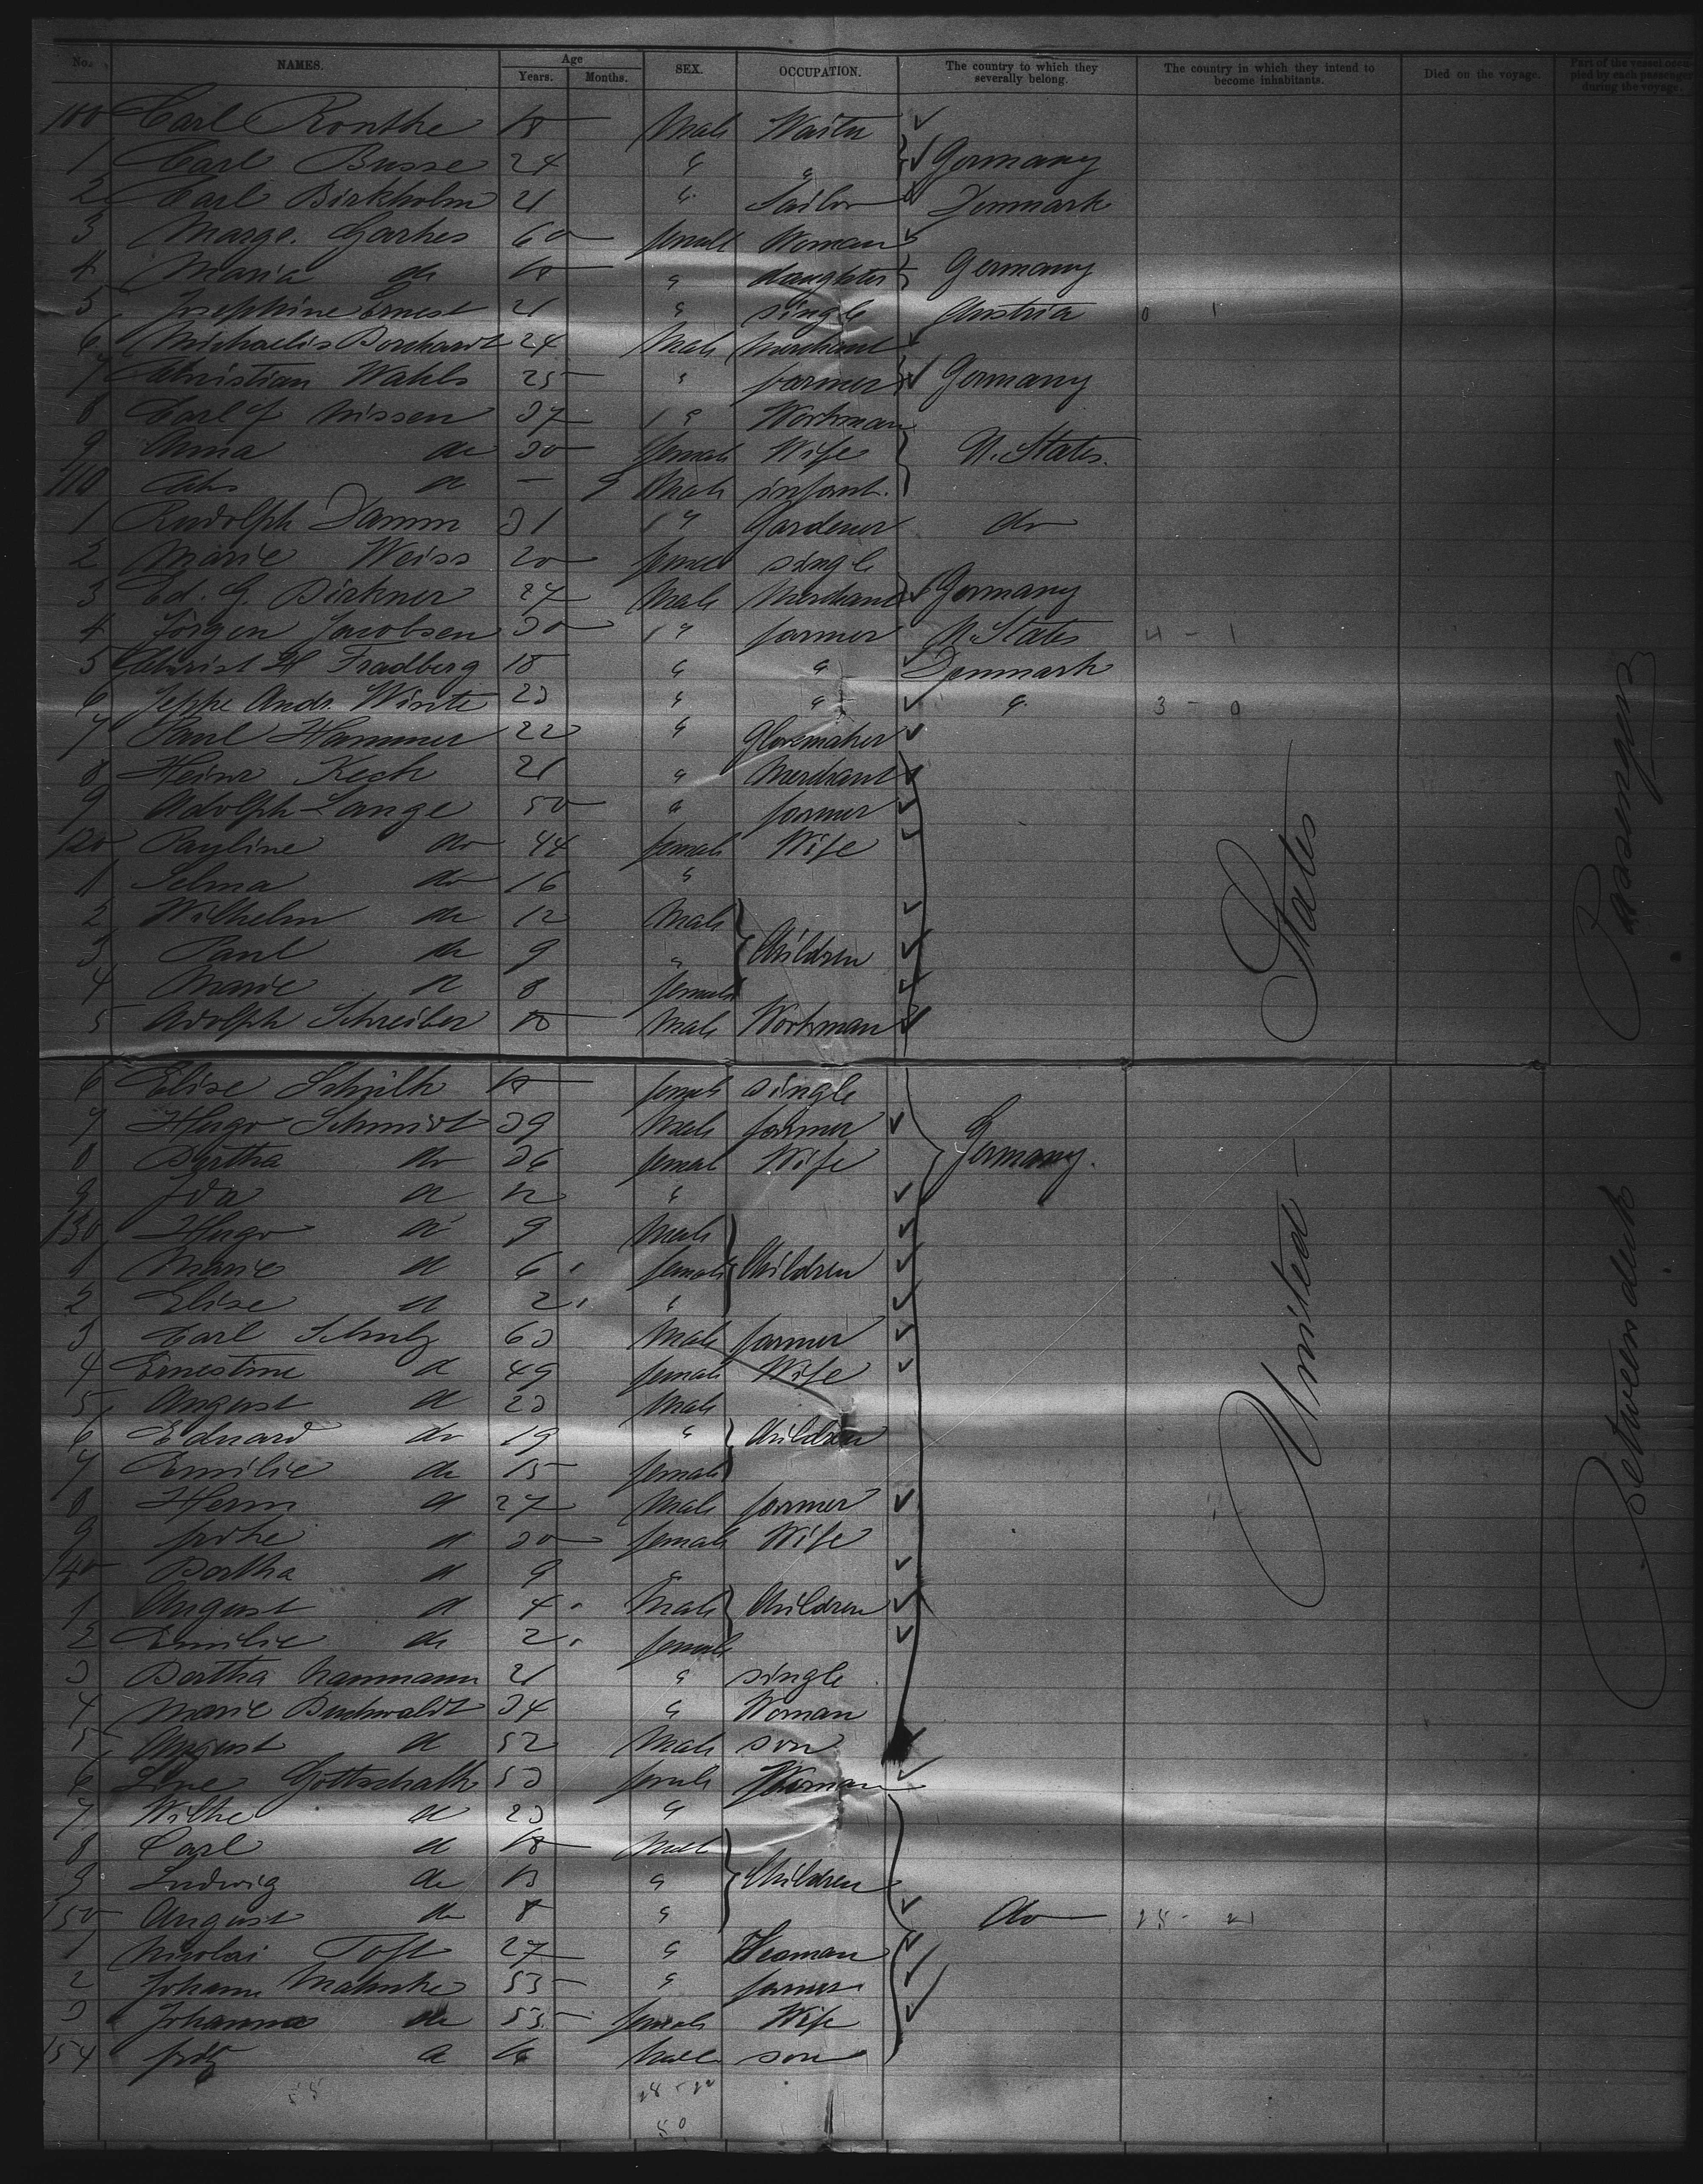 No. NAMES. Age Years. Months. SEX. OCCUPATION. The country to which they severally belong. The country in which they intend to become inhabitants. Died on the voyage. Part of the vessel occupied by each passenger during the voyage.
100 Carl Ronthe 18 Male Waiter
1 Carl Busse 24 " " Germany
2 Carl Birkholm 21 " Sailor Denmark
3 Marge. Garhes 60 female Woman
4 Maria do 18 " daughter Germany
5 Josephine Ernest 21 " single Austria 0 1
6 Michaelis Borchardt 24 Male Merchant
7 Christian Wahls 25 " farmer Germany
8 Carl J Nissen 37 " Workman
9 Anna do 30 female Wife U. States.
110 do — 9 Male infant.
1 Rudolph Damm 31 " Gardener do
2 Marie Weiss 20 female single
3 Ed. G. Dirkner 27 Male Merchant Germany
4 Jörgen Jacobsen 30 " farmer U. States 4 - 1
5 Christ H Fradberg 18 " " Denmark
6 Jeppe Andr. Winte 23 " " " 3 - 0
7 Paul Hammer 22 " Glovemaker
8 Heinr Kech 21 " Merchant
9 Adolph Lange 50 " farmer
120 Pauline do 44 female Wife
1 Selma do 16 "
2 Wilhelm do 12 Male
3 Paul do 9 " Children
4 Marie do 8 female
5 Adolph Schreiber 18 Male Workman
6 Elise female single
7 Hugo Schmidt 39 Male farmer
8 Bertha do 36 female Wife Germany.
9 Ida do "
130 Hugo do 9 Male
1 Marie do 6 female Children
2 Elise do 2 "
3 Carl Schulz 63 Male farmer
4 Ernestine do 49 female Wife
5 August do 23 Male
6 Eduard do 19 " Children
7 Emilie do 15 female
8 Herm do 27 Male farmer
9 do 30 female Wife
140 Bertha do 9 "
1 August do 4 Male Children
2 Emilie do 2 female
3 Bertha Naumann 21 " single
4 Marie Buchwaldt 34 " Woman
5 August do Male son
6 Line Gottschalk 53 female Woman
7 Wilhe do 23 "
8 Carl do 18 Male
9 Ludwig do 13 " Children
150 August do 8 " do
1 Nicolai Toft 27 " Seaman
2 Johann Mahnke 53 " farmer
3 Johanna do 53 female Wife
154 do Male son
United States
Between deck Passengers